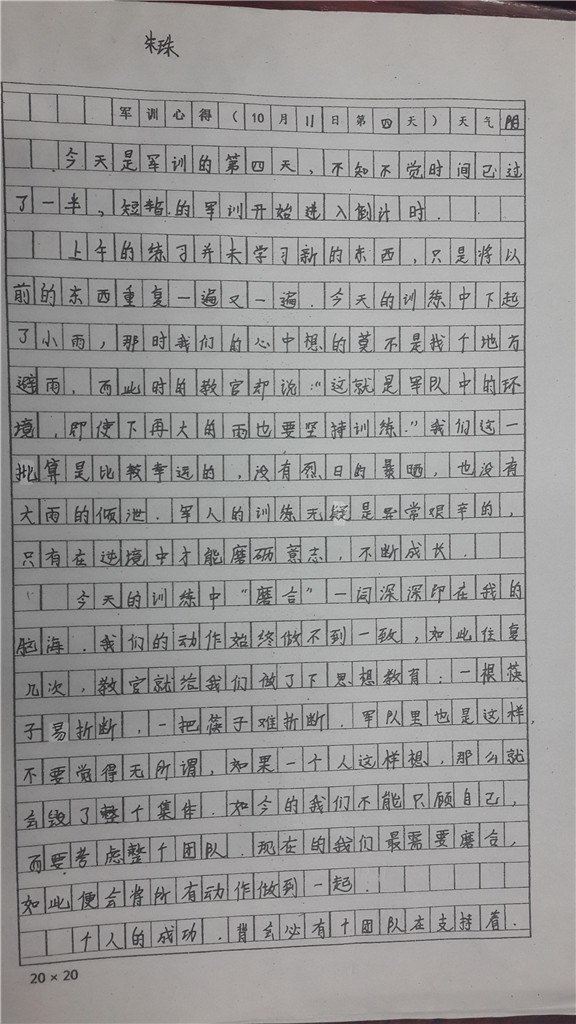 朱珠
军训心得(10月11日第四天)天气阴
今天是军训的第四天,不知不觉时间已过
了一半,短暂的军训开始进入倒计时.
上午的练习并未学习新的东西,只是将以
前的东西重复一遍又一遍.今天的训练中下起
了小雨,那时我们的心中想的莫不是找个地方
避雨,而此时的教官却说:“这就是军队中的环
境,即使下再大的雨也要坚持训练.”我们这一
批算是比较幸运的,没有烈日的暴晒,也没有
大雨的倾泄.军人的训练无疑是异常艰辛的,
只有在逆境中才能磨砺意志,不断成长.
今天的训练中“磨合”一词深深印在我的
脑海.我们的动作始终做不到一致,如此往复
几次,教官就给我们做了下思想教育:一根筷
子易折断,一把筷子难折断.军队里也是这样,
不要觉得无所谓,如果一个人这样想,那么就
会毁了整个集体.如今的我们不能只顾自己,
而要考虑整个团队.现在的我们最需要磨合,
如此便会将所有动作做到一起.
个人的成功.背会必有个团队在支持着.
20×20